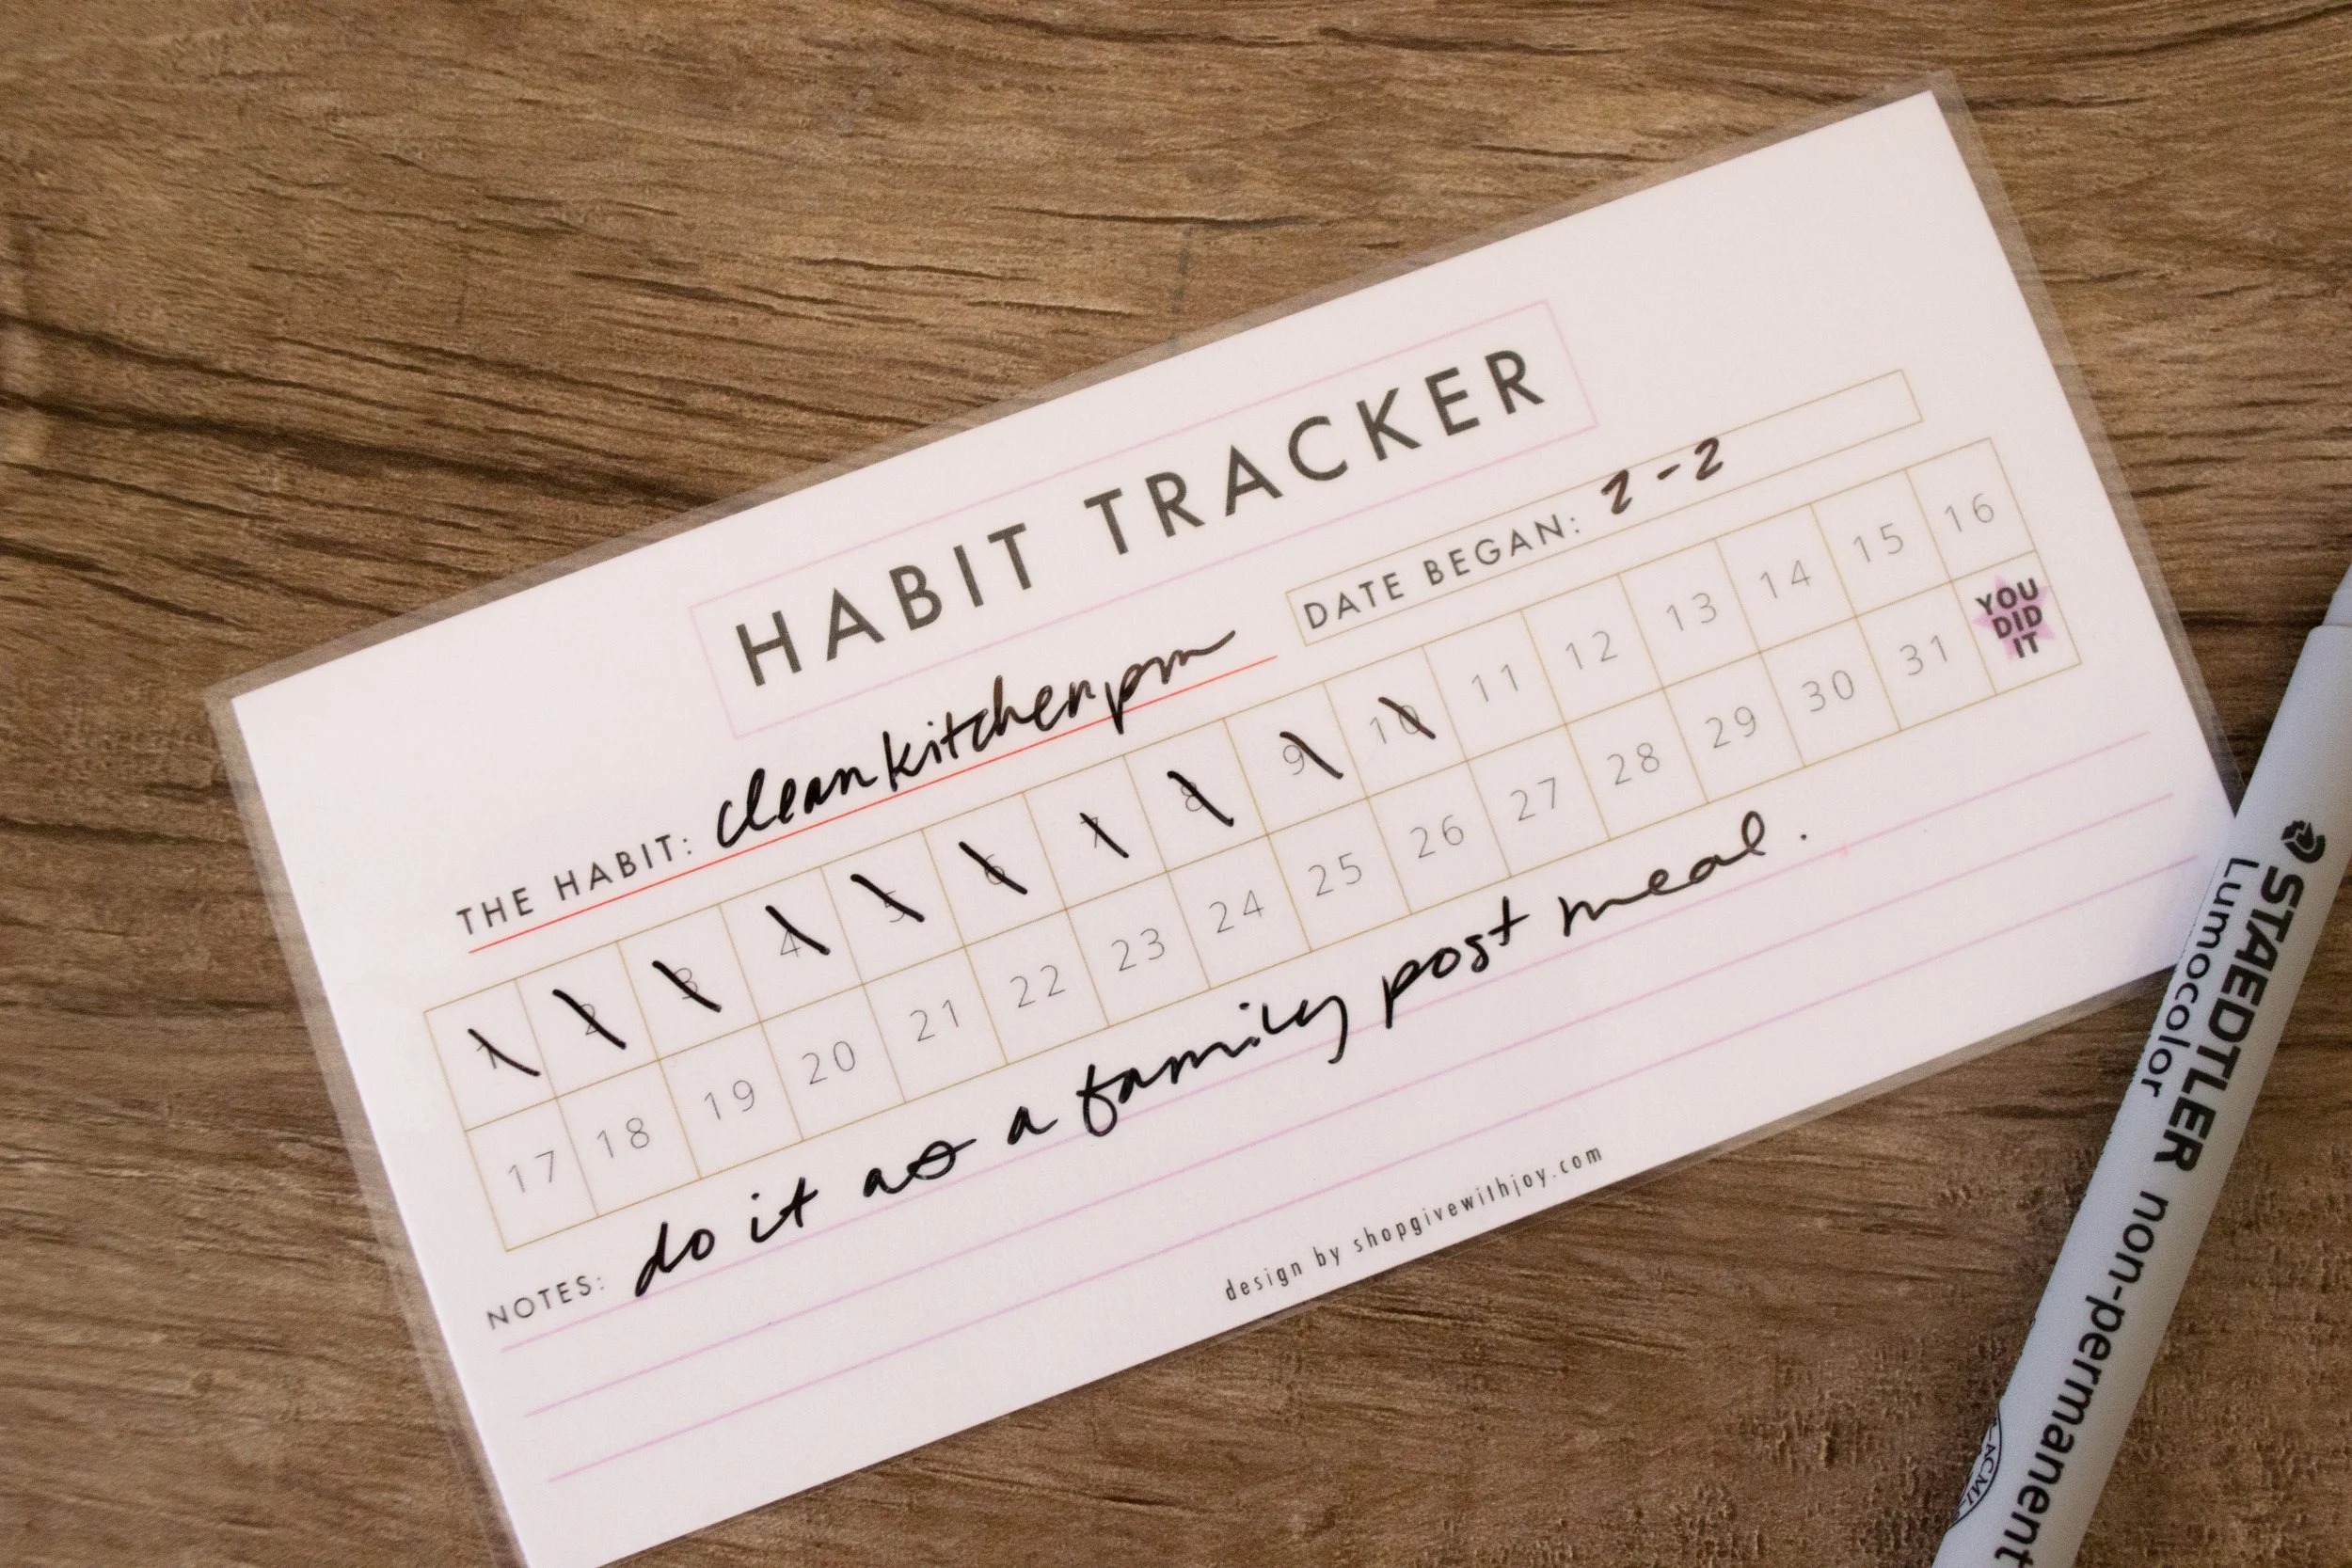 HABIT TRACKER
THE HABIT: clean kitchen pm
DATE BEGAN: 2-2
1 2 3 4 5 6 7 8 9 10 11 12 13 14 15 16
17 18 19 20 21 22 23 24 25 26 27 28 29 30 31 YOU DID IT
NOTES: do it as a family post meal.
design by shopgivewithjoy.com
STAEDTLER non-permanent
Lumocolor
ACMI